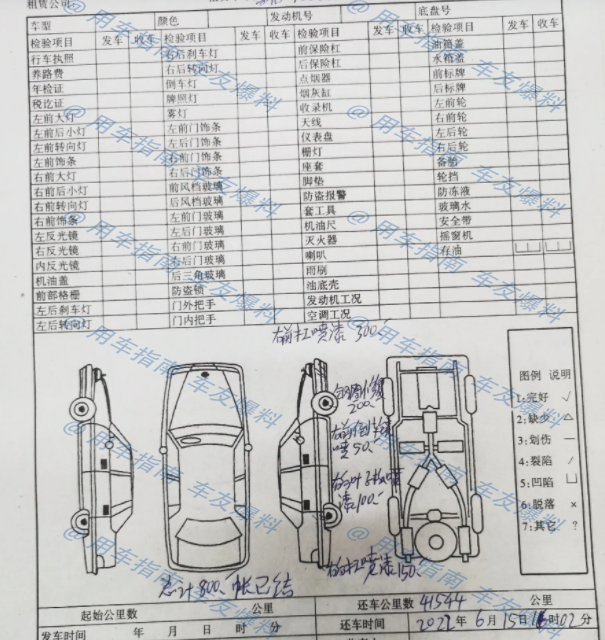 租赁公司
车型 颜色 发动机号 底盘号
检验项目 发车 收车 检验项目 发车 收车 检验项目 发车 收车 油箱盖
行车执照 右后刹车灯 前保险杠 水箱盖
养路费 右后转向灯 后保险杠 前标牌
年检证 倒车灯 点烟器 后标牌
税讫证 牌照灯 烟灰缸 左前轮
左前大灯 雾灯 收录机 右前轮
左前后小灯 左前门饰条 天线 左后轮
左前转向灯 左后门饰条 仪表盘 右后轮
左前饰条 右前门饰条 栅灯 备胎
右前大灯 右后门饰条 座套 轮挡
右前后小灯 前风档玻璃 脚垫 防冻液
右前转向灯 后风档玻璃 防盗报警 玻璃水
右前饰条 左前门玻璃 套工具 安全带
左反光镜 左后门玻璃 机油尺 摇窗机
右反光镜 右前门玻璃 灭火器 存油
内反光镜 右后门玻璃 喇叭
机油盖 后三角玻璃 雨刷
前部格栅 防盗锁 油底壳
左后刹车灯 门外把手 发动机工况
左后转向灯 门内把手 空调工况
右前杠喷漆 300
200
右前
喷 50
右前叶子板喷
漆100
右前杠喷漆150
总计800 帐已结
图例 说明
1:完好 √
2:缺少 △
3:划伤 —
4:裂陷 /
5:凹陷 ⊔
6:脱落 ×
7:其它 ?
起始公里数 公里 还车公里数 41544 公里
发车时间 年 月 日 时 分 还车时间 2021年 6月 15日 时02分
@用车指南 车友爆料